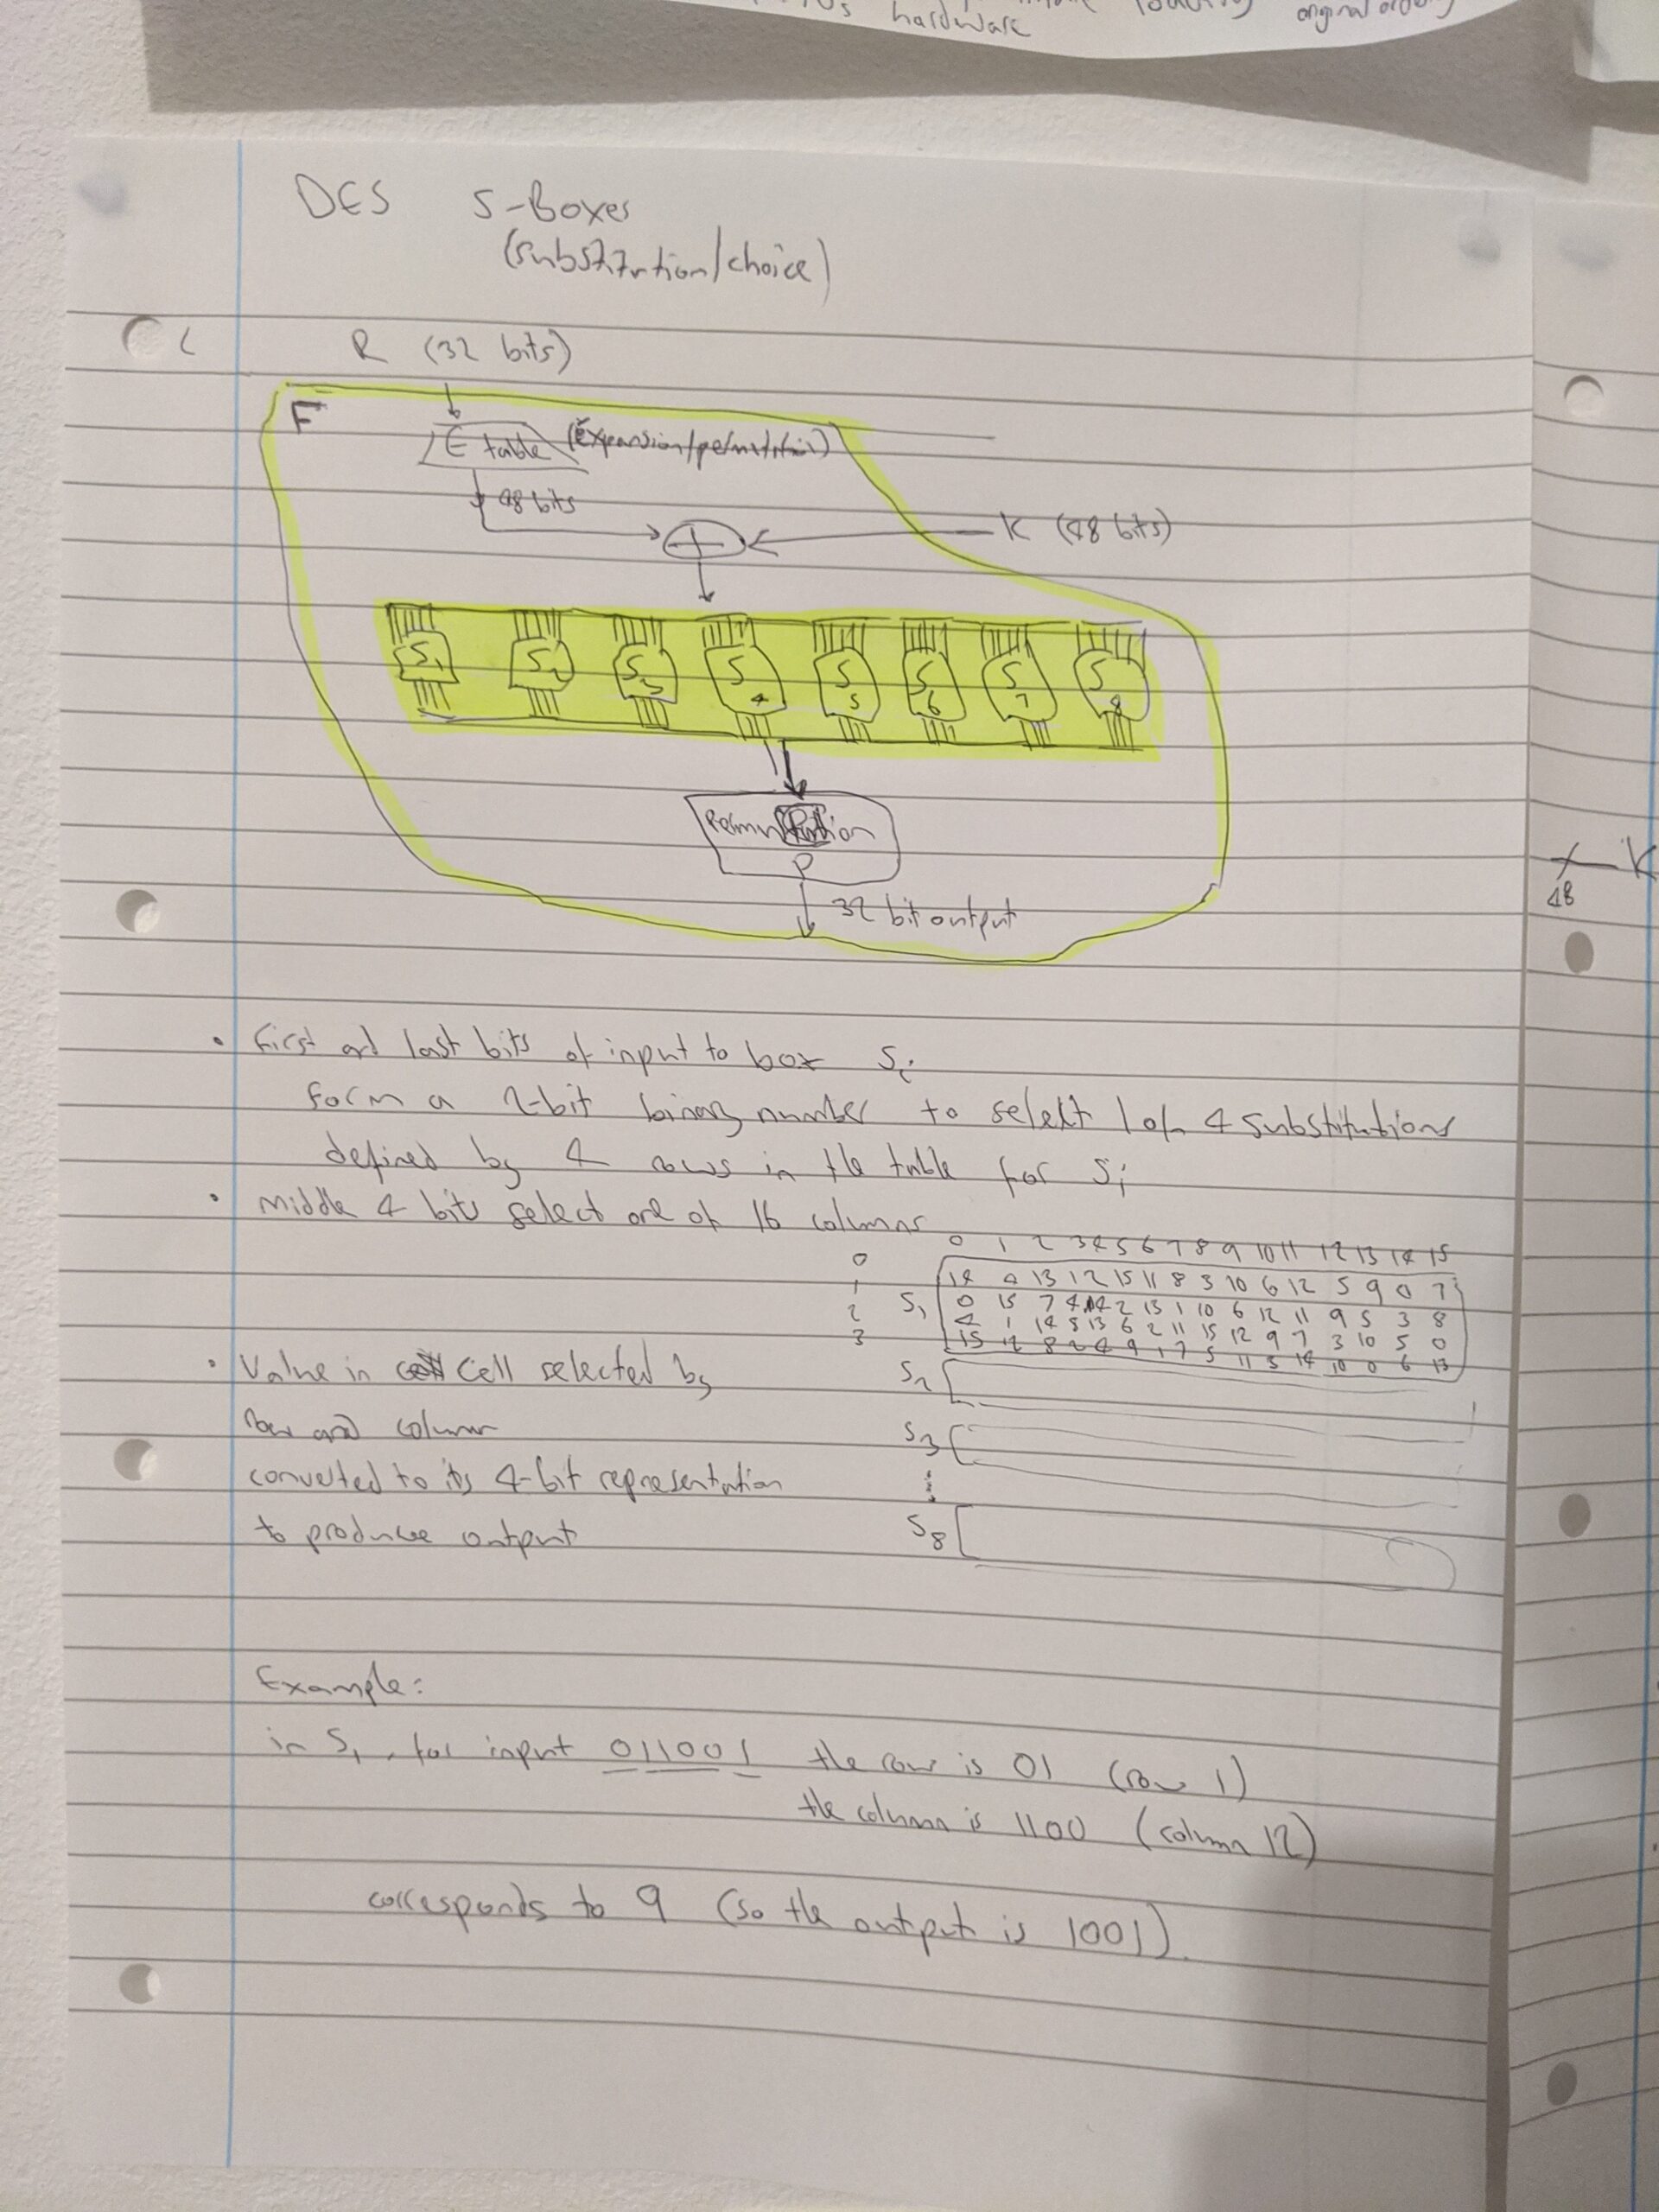 hardware
original ordering
DES S-Boxes
(substitution/choice)
L R (32 bits)
F
E table (expansion/permutation)
48 bits
K (48 bits)
S1 S2 S3 S4 S5 S6 S7 S8
Permutation
P
32 bit output
K
48
• First and last bits of input to box Si
form a 2-bit binary number to select 1 of 4 substitutions
defined by 4 rows in the table for Si
• Middle 4 bits select one of 16 columns
0 1 2 3 4 5 6 7 8 9 10 11 12 13 14 15
0 14 4 13 1 2 15 11 8 3 10 6 12 5 9 0 7
1 S1 0 15 7 4 14 2 13 1 10 6 12 11 9 5 3 8
2 4 1 14 8 13 6 2 11 15 12 9 7 3 10 5 0
3 15 12 8 2 4 9 1 7 5 11 3 14 10 0 6 13
• Value in cell selected by
row and column
converted to its 4-bit representation
to produce output
S2
S3
S8
Example:
in S1, for input 011001 the row is 01 (row 1)
the column is 1100 (column 12)
corresponds to 9 (so the output is 1001).